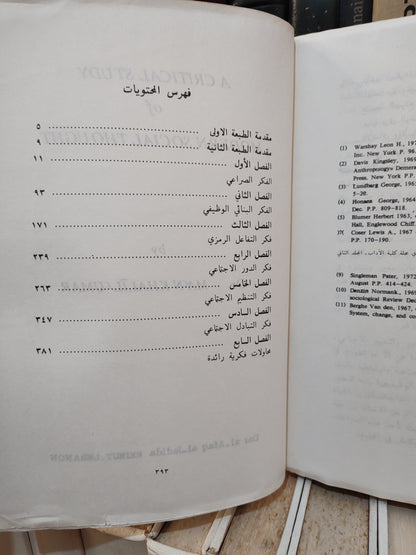 فهرس المحتويات
مقدمة الطبعة الاولى ٥
مقدمة الطبعة الثانية ٩
الفصل الأول ١١
الفكر الصراعي
الفصل الثاني ٩٣
الفكر البنائي الوظيفي
الفصل الثالث ١٧١
فكر التفاعل الرمزي
الفصل الرابع ٢٣٩
فكر الدور الاجتماعي
الفصل الخامس ٢٦٣
فكر التنظيم الاجتماعي
الفصل السادس ٣٤٧
فكر التبادل الاجتماعي
الفصل السابع ٣٨١
محاولات فكرية رائدة
٣٩٣
(1) Warshay Leon H., 197
Inc. New York P. 96.
(2) Davis Kingsley, 1969
Anthropongyv Demera
Press, New York P.P.
(3) Lundbarg George, 196
5–20.
(4) Homans George, 1964
Dec. P.P. 809–818.
(5) Blumer Herbert 1963,
Hall, Englewood Chiff
Coser Lewis A., 1967
P.P. 170–190.
مجلة كلية الآداب، المجلد الثاني
(9) Singleman Pater, 1972
August P.P. 414–424.
(10) Denzin Normank., 1969
sociological Review Dec
(11) Berghe Van den, 1967,
System, change, and co